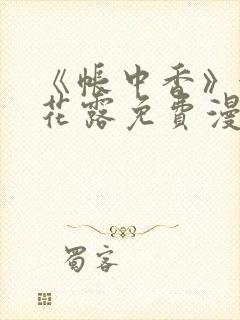 《帐中香》
花露免费漫
蜀客